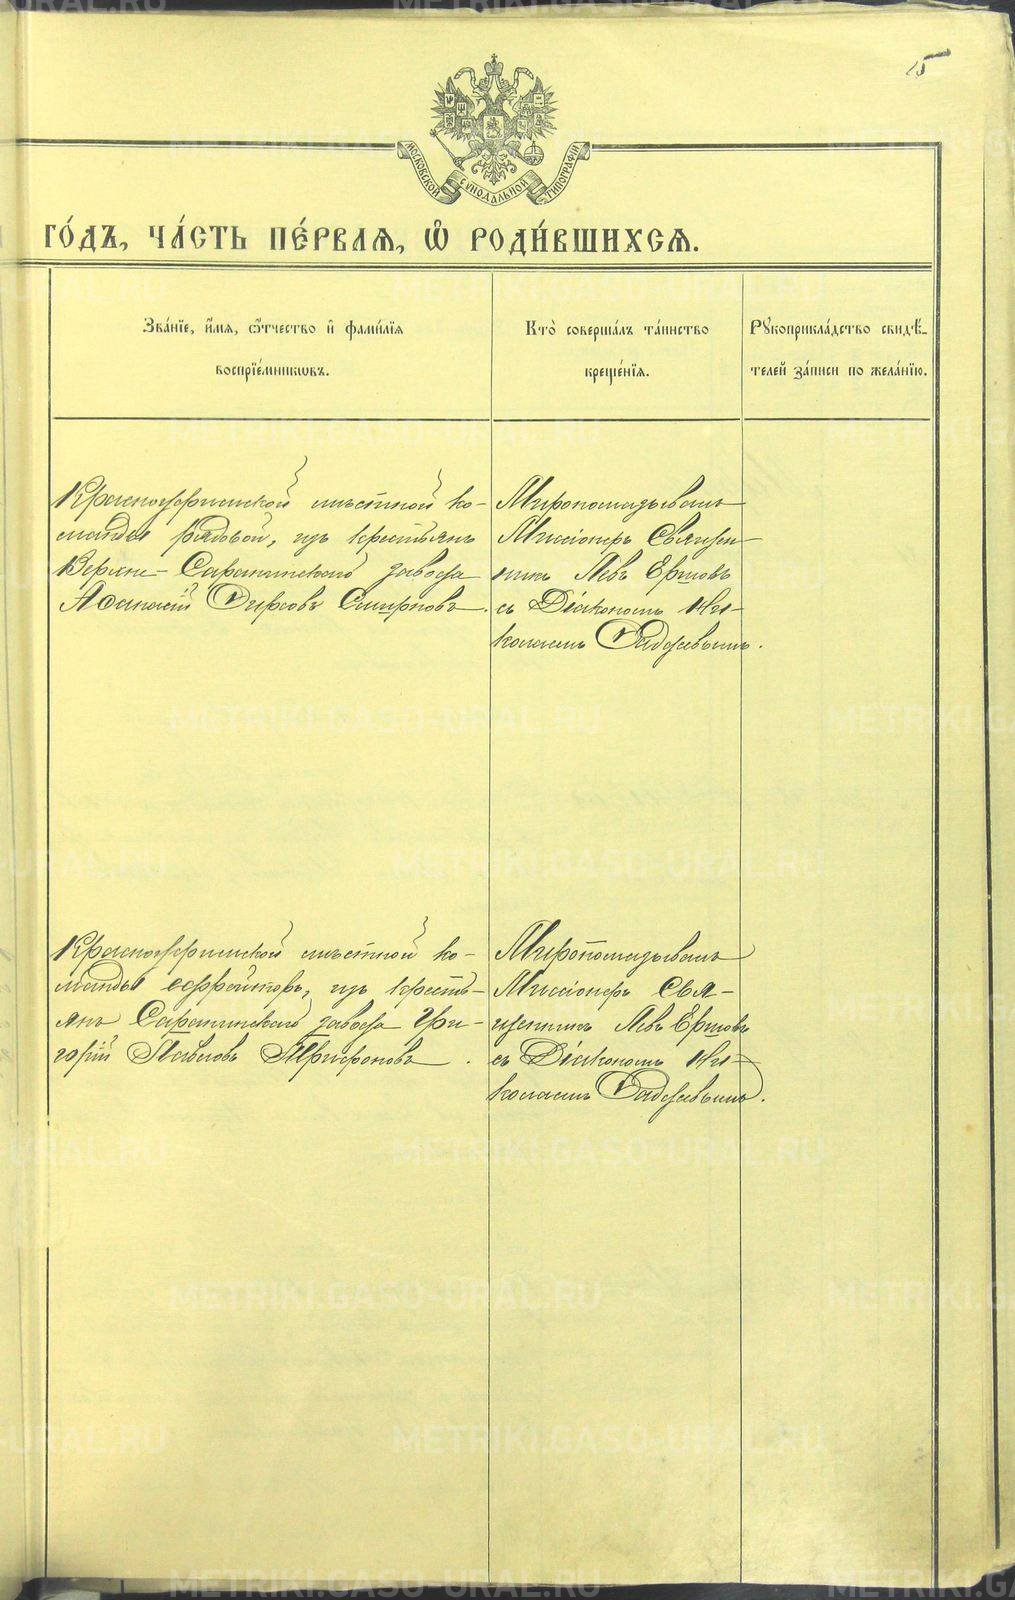 15
МОСКОВСКОЙ СѴНОДАЛЬНОЙ ТИПОГРАФІИ
ГО́ДЪ, ЧА́СТЬ ПЕ́РВАѦ, Ѡ҆ РОДИ́ВШИХСѦ.
Зва́нїе, и҆́мѧ, ѻ҆́тчество и҆ фами́лїѧ
воспрїе́мникѡвъ.
Кто̀ соверша́лъ та́инство
креще́нїѧ.
Рꙋкоприкла́дство свидѣ́-
телей за́писи по жела́нїю.
Красноуфимской мѣстной ко-
манды рядовой, изъ крестьянъ
Верхне-Саранинскаго завода
Афанасій Фирсовъ Смирновъ.
Мѵропомазывалъ
Миссіонеръ Священ-
никъ Левъ Ершовъ
съ Діакономъ Ни-
колаемъ
Красноуфимской мѣстной ко-
манды ефрейторъ, изъ кресть-
янъ Саранинскаго завода Гри-
горій Павловъ Трифоновъ.
Мѵропомазывалъ
Миссіонеръ Свя-
щенникъ Левъ Ершовъ
съ Діакономъ Ни-
колаемъ
METRIKI.GASO-URAL.RU